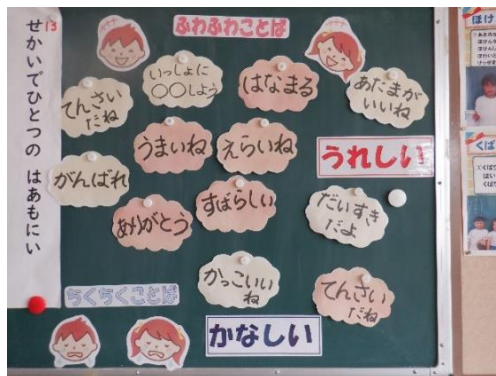 せかいでひとつの はあもにい
ふわふわことば
いっしょに
○○しよう
はなまる
あたまが
いいね
てんさい
だね
うまいね
えらいね
うれしい
がんばれ
ありがとう
すばらしい
だいすき
だよ
かっこいい
ね
てんさい
だね
ちくちくことば
かなしい